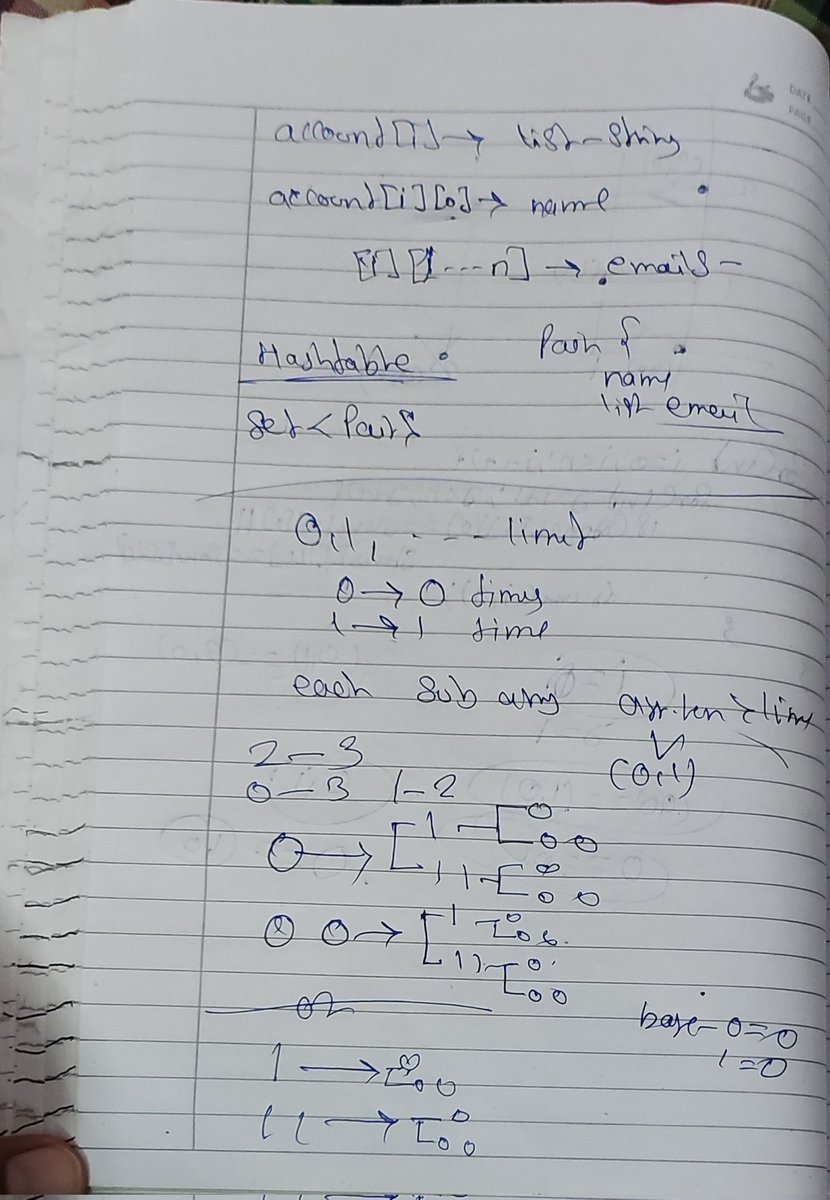 DATE
PAGE
account[i] → list - string
account[i][0] → name
[i][1...n] → emails -
Hashtable
Pair {
name
list email
Set < Pair {
0,1, - - - limit
0 → 0 times
1 → 1 time
each sub array arr.len > limit
(0,1)
2 - 3
0 - 3 1 - 2
0 → 1 0
0 0
1 1 0
0 0
0 0 → 1 0
0 0
1 1 0
0 0
or
base - 0 = 0
1 = 0
1 → 0
0 0
1 1 → 0
0 0